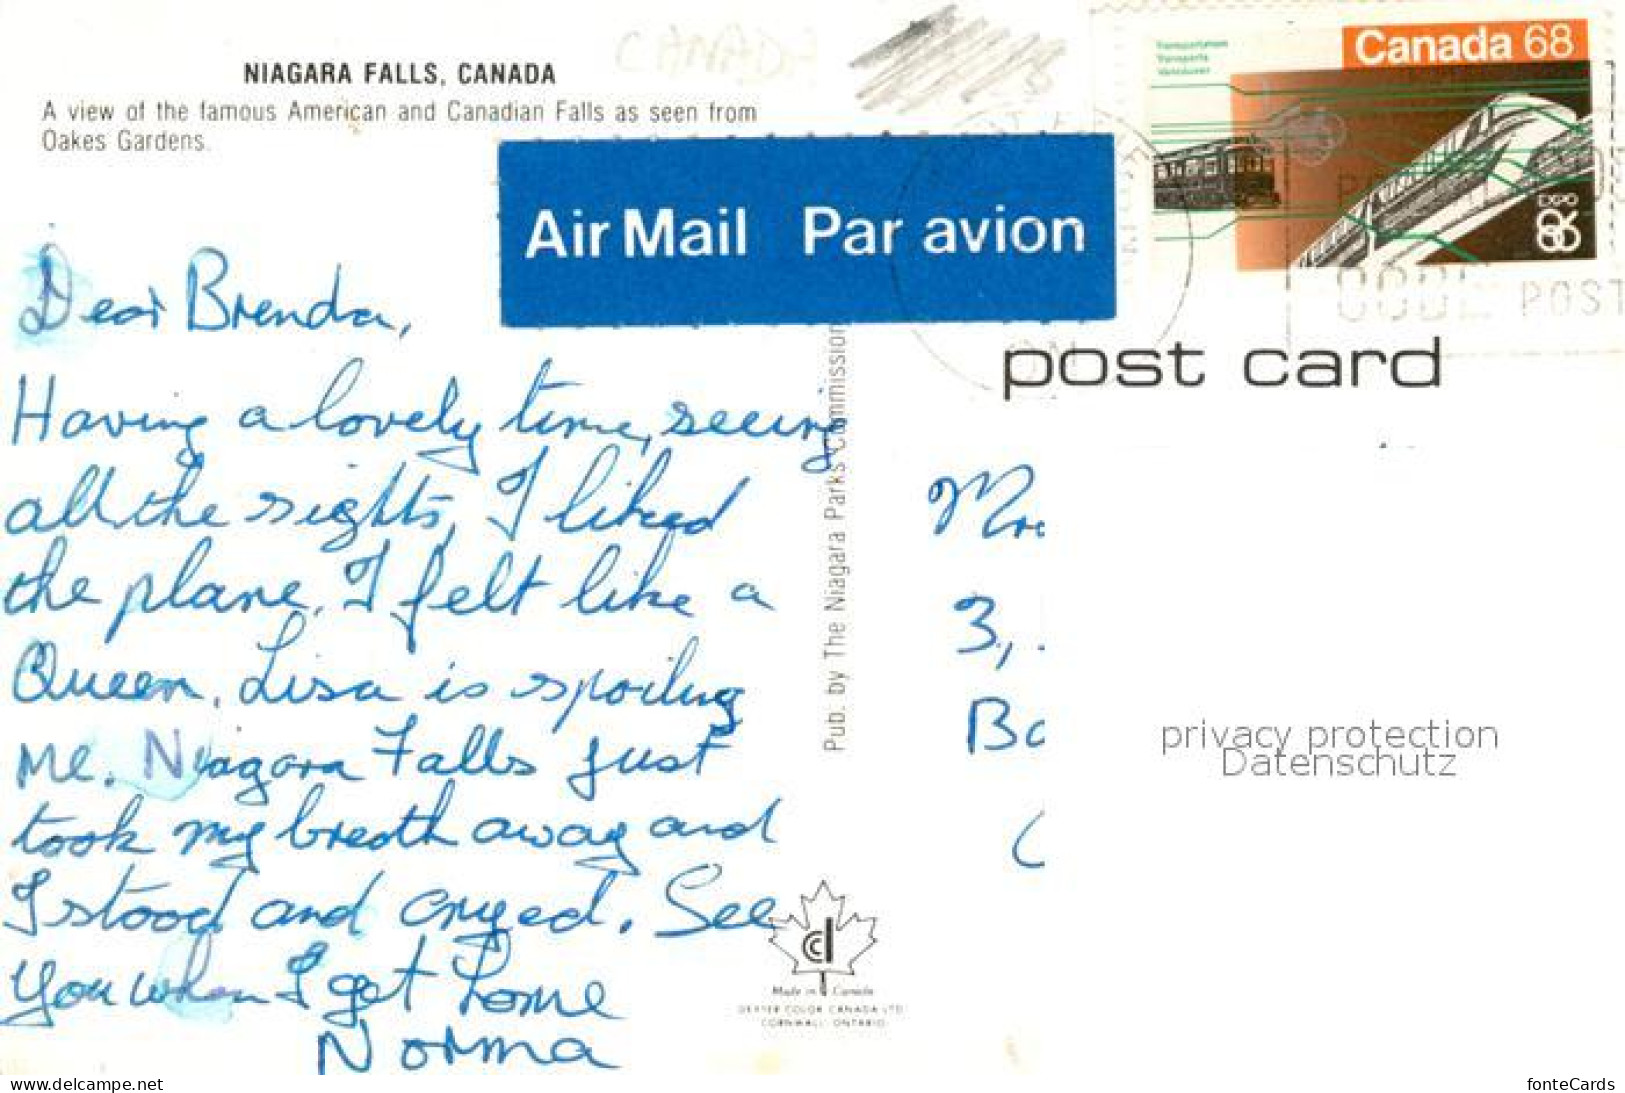 NIAGARA FALLS, CANADA
A view of the famous American and Canadian Falls as seen from
Oakes Gardens.
CANADA
Canada 68
Transportation
Transports
Vancouver
EXPO
86
CODE POST
Air Mail Par avion
post card
Dear Brenda,
Having a lovely time, seeing
all the sights, I liked
the plane, I felt like a
Queen, Lisa is spoiling
me. Niagara Falls just
took my breath away and
I stood and cryed. See
you when I get home
Norma
Pub. by The Niagara Parks Commission
3,
Ba
privacy protection
Datenschutz
Made in Canada
DEXTER COLOR CANADA LTD.
CORNWALL, ONTARIO
www.delcampe.net
fonteCards